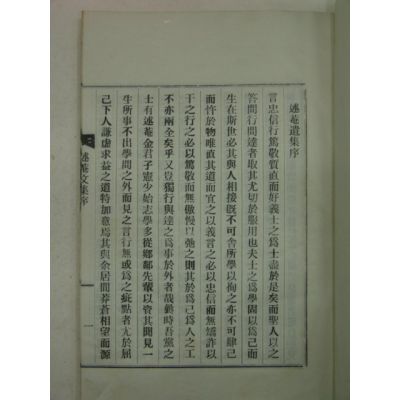 述菴遺集序
言忠信行篤敬質直而好義士之爲士盡於是矣而聖人以之
答問行問達者取其尤切於服用也夫士之爲學固以爲己而
生在斯世必其與人相接旣不可舍所學以徇之亦不可肆己
而忤於物唯直其道而宜之以義言之必以忠信而無嬌詐以
干之行之必以篤敬而無傲慢以弛之則其於爲己爲人之工
不亦兩全矣乎又豈獨行與達之爲事於外者哉曩時吾黨之
士有述菴金君子憲少始志學多從鄕鄰先輩以資其聞見一
生所事不出學問之外而見之言行無或爲之疵點者尤於屈
己下人謙虛求益之道特加意焉其與余居間莽蒼相望而源
述菴文集序
一